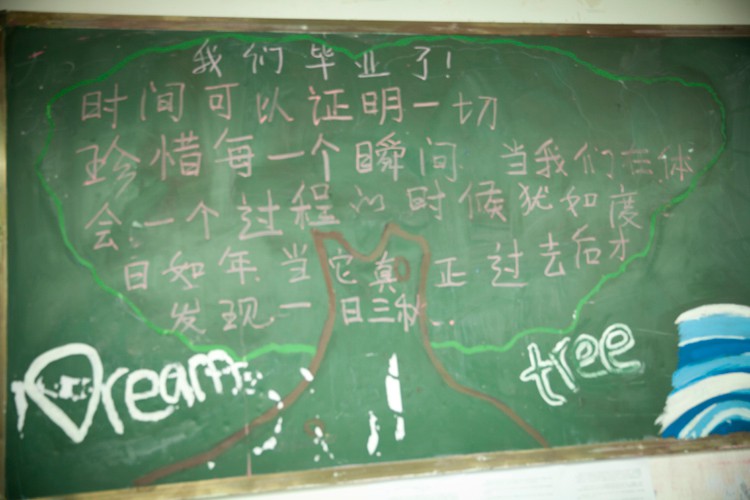 我们毕业了!
时间可以证明一切
珍惜每一个瞬间 当我们在体
会一个过程的时候犹如度
日如年 当它真正过去后才
发现一日三秋...
Dream tree